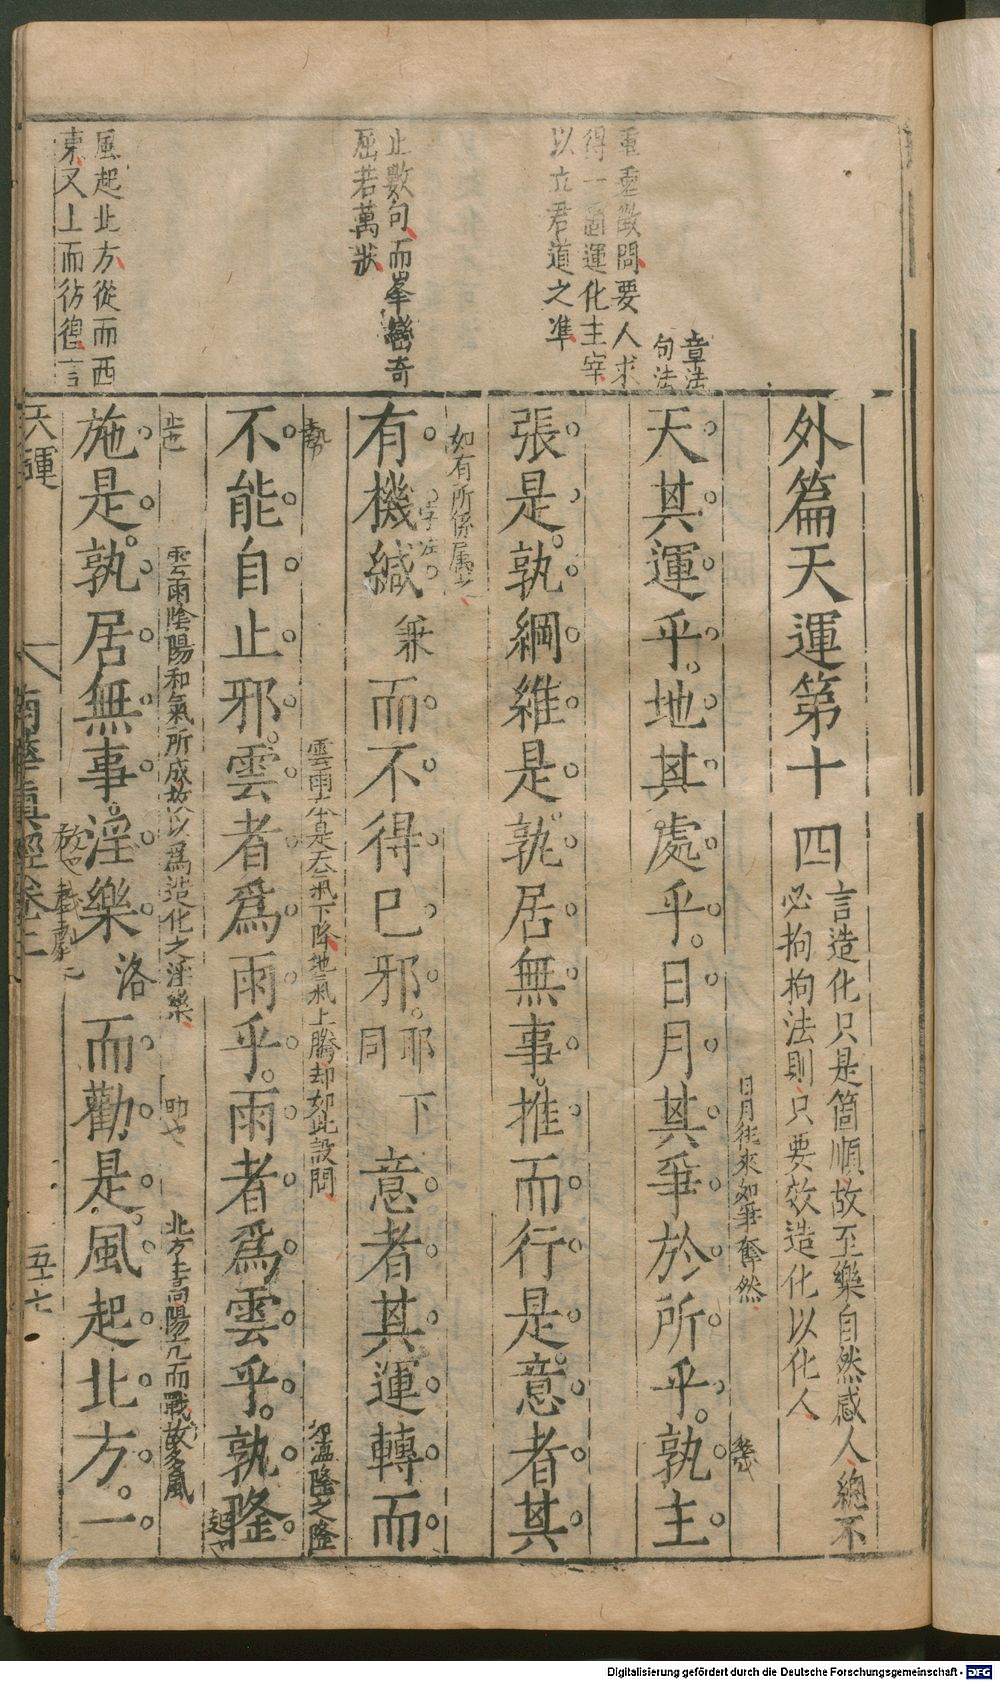 外篇天運第十四
言造化只是箇順故至樂自然感人總不
必拘拘法則只要效造化以化人
日月往來如爭奪然
天其運乎地其處乎日月其爭於所乎孰主
張是孰綱維是孰居無事推而行是意者其
如有所係属之
有機緘兼而不得已邪耶同下意者其運轉而
勢
雲雨本是天氣下降地氣上騰却如此設問
不能自止邪雲者爲雨乎雨者爲雲乎孰隆
起也
止也
雲雨陰陽和氣所成故以爲造化之淫樂
助也
北方上高陽亢而戰故多風
施是孰居無事淫樂洛而勸是風起北方一
章法
句法
重重徵問要人求
得一箇運化主宰
以立君道之凖
止數句而峯巒奇
屈若萬狀
風起北方從而西
東又上而彷徨言
天運
南華真經卷
五十六
Digitalisierung gefördert durch die Deutsche Forschungsgemeinschaft - DFG